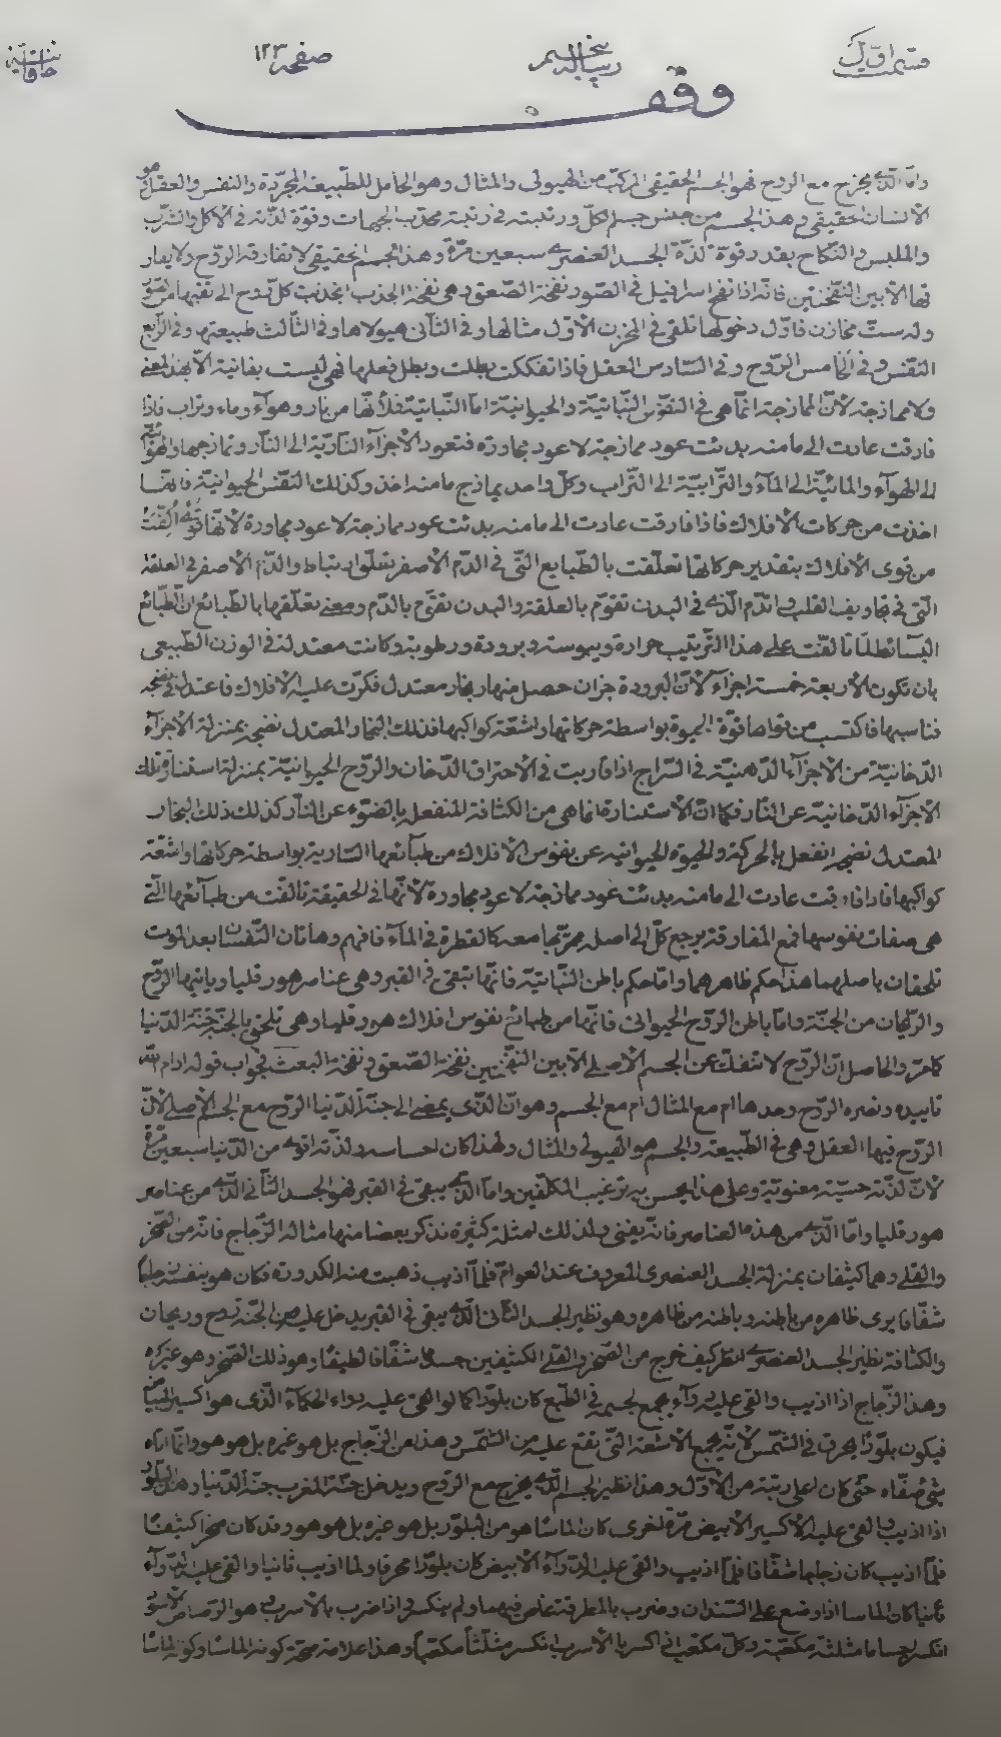 قسمت اوّل
رسالة
صفحه ١٢٣
وقف
وامّا الّذي يخرج مع الروح فهو الجسم الحقيقي المركّب من الهيولى والمثال وهو الحامل للطّبيعة المجرّدة والنفس والعقل هو
الانسان الحقيقي وهذا الجسم من جنس جسم الكلّ ورتبته في رتبة محدّب الجهات وقوّة لذّته في الاكل والشّرب
والملبس والنّكاح بقدر قوّة لذّة الجسد العنصري سبعين مرّة وهذا الجسم الحقيقي لا تفارقه الرّوح ولا يفار
قها الّا بين النّفختين فانّه اذا نفخ اسرافيل في الصّور نفخة الصّعق وهي نفخة الجذب انجذبت كلّ روح الى ثقبها من الصّور
وله ستّ مخازن فاوّل دخولها تلقى في المخزن الاوّل مثالها وفي الثّاني هيولاها وفي الثّالث طبيعتها وفي الرّابع
النّفس وفي الخامس الرّوح وفي السّادس العقل فاذا تفككت بطلت وبطل فعلها فهي ليست بفانية الّا بهذا المعنى
ولا ممازجة لانّ الممازجة انّما هي في النّفوس النّباتيّة والحيوانيّة امّا النّباتيّة فلأنّها من نار وهوآء وماء وتراب فاذا
فارقت عادت الى ما منه بدئت عود ممازجة لا عود مجاورة فتعود الاجزآء النّاريّة الى النّار وتمازجها والهوآئيّة
الى الهوآء والمائيّة الى المآء والتّرابيّة الى التّراب وكلّ واحد يمازج ما منه اخذ وكذلك النّفس الحيوانيّة فانّها
اخذت من حركات الافلاك فاذا فارقت عادت الى ما منه بدئت عود ممازجة لا عود مجاورة لانّها قوّة الّفت
من قوى الافلاك بتقدير حركاتها تعلّقت بالطّبايع الّتي في الدّم الاصفر تعلّق ارتباط والدّم الاصفر في العلقة
الّتي في تجاويف القلب والدّم الّذي في البدن تقوّم بالعلقة والبدن تقوّم بالدّم ومعنى تعلّقها بالطّبائع انّ الطّبائع
البسائط لمّا تألّفت على هذا التّرتيب حرارة ويبوسة وبرودة ورطوبة وكانت معتدلة في الوزن الطّبيعي
بان تكون الاربعة خمسة اجزآء لانّ البرودة جزآن حصل منها بخار معتدل فكرّت عليه الافلاك فاعتدل في نضجه
فناسبها فاكتسب من قواها قوّة الحيوة بواسطة حركاتها واشعّة كواكبها فذلك البخار المعتدل نضجه بمنزلة الاجزآء
الدّخانيّة من الاجزآء الدّهنيّة في السّراج اذا قاربت في الاحتراق الدّخان والرّوح الحيوانيّة بمنزلة استنارة تلك
الاجزآء الدّخانيّة عن النّار فكما انّ الاستنارة انما هي من الكثافة المنفعل بالضّوء عن النّار كذلك ذلك البخار
المعتدل نضجه انفعل بالحركة والحيوة الحيوانيه عن نفوس الافلاك من طبآئعها السّارية بواسطة حركاتها واشعّة
كواكبها فاذا فارقت عادت الى ما منه بدئت عود ممازجة لا عود مجاورة لانّها في الحقيقة تألّفت من طبآئعها الّتي
هي صفات نفوسها فمع المفارقة يرجع كلّ الى اصله معه كالقطرة في المآء فافهم وهاتان النّفسان بعد الموت
تلحقان باصلهما هذا حكم ظاهرهما وامّا حكم باطن النّباتيّة فانّها تبقى في القبر وهي عناصر هورقليا وياتيها الرّوح
والرّيحان من الجنّة وامّا باطن الرّوح الحيوانى فانّها من طبائع نفوس افلاك هورقليا وهي تلحق بالجنّة جنّة الدّنيا
كما مرّ والحاصل انّ الرّوح لا تنفكّ عن الجسم الاصلي الّا بين النّفختين نفخة الصّعق ونفخة البعث بجواب قوله ادام الله
تاييده ونصره الرّوح وحدها ام مع المثال ام مع الجسم وهو انّ الّذي يمضي الى جنّة الدّنيا الرّوح مع الجسم الاصلي لانّ
الرّوح فيها العقل وهي في الطّبيعة والجسم هو الهيولى والمثال ولهذا كان احساسه ولذّته اقوى من الدّنيا سبعين مرّة
لانّ لذّته حسيّة معنويّة وعلى هذا يحسن به ترغيب المكلّفين وامّا الّذي يبقى في القبر فهو الجسد الثّاني الّذي من عناصر
هورقليا وامّا الّذي من هذه العناصر فانّه يفنى ولذلك امثلة كثيرة نذكر بعضا منها مثاله الزّجاج فانّه من الصّخر
والقلي وهما كثيفان بمنزلة الجسد العنصرى المعروف عند العوام فلمّا اذيب ذهبت منه الكدورة فكان هو بنفسه زجاجا
شفّافا يرى ظاهره من باطنه وباطنه من ظاهره وهو نظير الجسد الثّانى الّذي يبقى في القبر يدخل عليه من الجنّة روح وريحان
والكثافة نظير الجسد العنصرى انظر كيف خرج من الصّخر والقلي الكثيفين جسما شفّافا لطيفا وهو ذلك الصّخر وهو غيره
وهذا الزّجاج اذا اذيب والقى عليه دوآء يجمع جسمه في الطّبع كان بلّورا كما لو القي عليه دواء الحكمآء الّذى هو اكسير البياض
فيكون بلّورا يحرق في الشّمس لانّه يجمع الاشعّة الّتي تقع عليه من الشّمس وهذا من الزّجاج بل هو غيره بل هو هو وانّما ازاله
شيئ صفّاه حتّى كان اعلى رتبة من الاوّل وهذا نظير الجسم الّذي يخرج مع الرّوح ويدخل جنّة المغرب جنّة الدّنيا وهذا البلّور
اذا اذيب والقي عليه الاكسير الابيض مرّة اخرى كان الماسا هو من البلّور بل هو غيره بل هو هو وقد كان صخرا كثيفا
فلمّا اذيب كان زجاجا شفّافا فلمّا اذيب والقى عليه الدّوآء الابيض كان بلّورا محرقا ولما اذيب ثانيا والقى عليه الدّوآء
ثانيا كان الماسا اذا وضع على السّندان وضرب بالمطرقة غاص فيهما ولم ينكسر واذا ضرب بالاسرب وهو الرّصاص الاسود
انكسر اجساما مثلثة مكعّبة وكلّ مكعّب اذا كسر بالاسرب انكسر مثلّثا مكعّبا وهذا علامة صحّة كونه الماسا وكونه الماسا